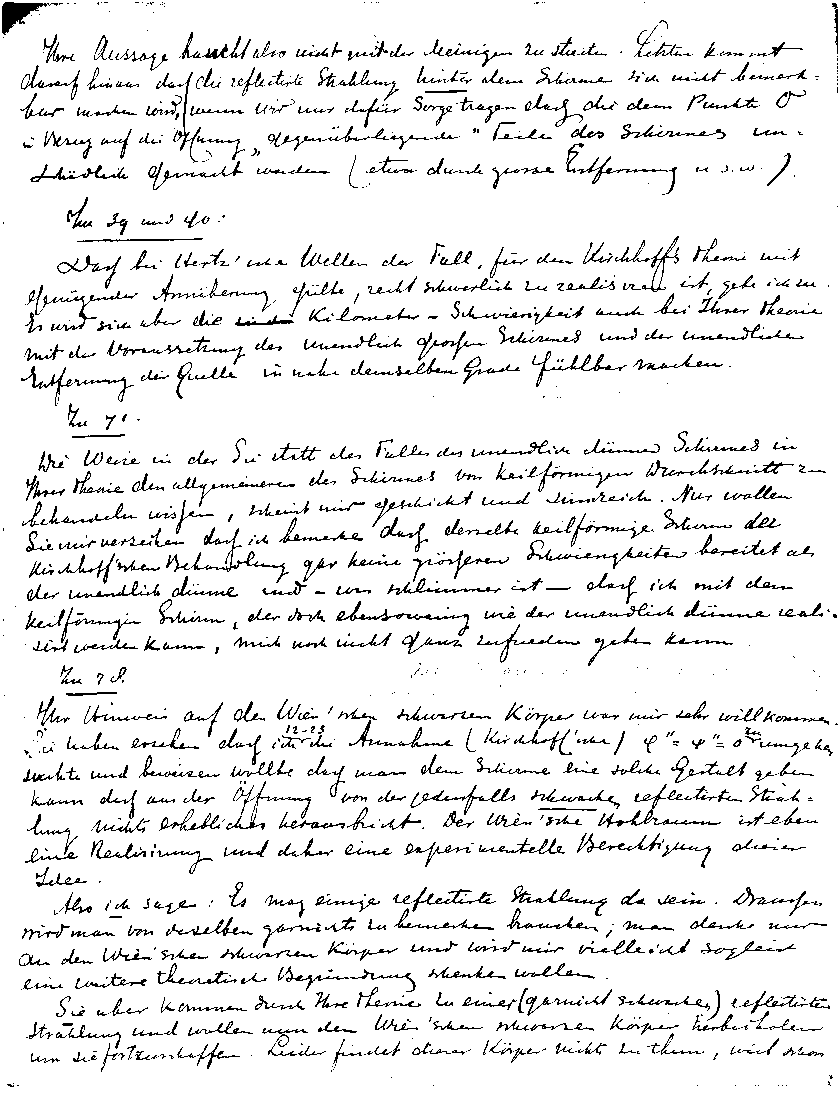 Ihre Aussage braucht also nicht mit der Meinigen zu streiten. Letztere kommt
darauf hinaus dass die reflectirte Strahlung hinter dem Schirme sich nicht bemerk-
bar machen wird, wenn wir nur dafür Sorge tragen dass die dem Punkte O
in Bezug auf die Öffnung „gegenüberliegende" Teile des Schirmes un-
schädlich gemacht werden (etwa durch grosse Entfernung u.s.w.).
Zu 39 und 40:
Dass bei Hertz'sche Wellen der Fall, für den Kirchhoffs Theorie mit
genügender Annäherung gülte, recht schwerlich zu realisiren ist, gebe ich zu.
Es wird sich aber die Kilometer-Schwierigkeit auch bei Ihrer Theorie
mit der Voraussetzung des unendlich grossen Schirmes und der unendlichen
Entfernung der Quelle in nahe demselben Grade fühlbar machen.
Zu 71.
Die Weise in der Sie statt des Falles des unendlich dünnen Schirmes in
Ihrer Theorie den allgemeineren des Schirmes von keilförmigen Durchschnitt zu
behandeln wissen, scheint mir geschickt und sinnreich. Nur wollen
Sie mir verzeihen dass ich bemerke dass derselbe keilförmige Schirm der
Kirchhoff'schen Behandlung gar keine grösseren Schwierigkeiten bereitet als
der unendlich dünne und – was schlimmer ist – dass ich mit dem
keilförmigen Schirm, der doch ebensowenig wie der unendlich dünne reali-
sirt werden kann, mich noch nicht ganz zufrieden geben kann.
Zu 78.
Ihr Hinweis auf den Wien'schen schwarzen Körper war mir sehr willkommen.
Sie haben ersehen dass ich 12-23 die Annahme (Kirchhoff'sche) φ"= ψ"= 0 umgehen
suchte und beweisen wollte dass man dem Schirme eine solche Gestalt geben
kann dass aus der Öffnung von der jedenfalls schwachen reflectirten Strah-
lung nichts erhebliches herausbricht. Der Wien'sche Hohlraum ist eben
eine Realisirung und daher eine experimentelle Berechtigung dieser
Idee.
Also ich sage: Es mag einige reflectirte Strahlung da sein. Draussen
wird man von derselben garnichts zu bemerken brauchen; man denke nur
an den Wien'schen schwarzen Körper und wird mir vielleicht sogleich
eine weitere theoretische Begründung schenken wollen.
Sie aber kommen durch Ihre Theorie zu einer (garnicht schwachen) reflectirten
Strahlung und wollen nun den Wien'schen schwarzen Körper herbeiholen
um sie fortzuschaffen. Leider findet dieser Körper nichts zu thun, weil schon